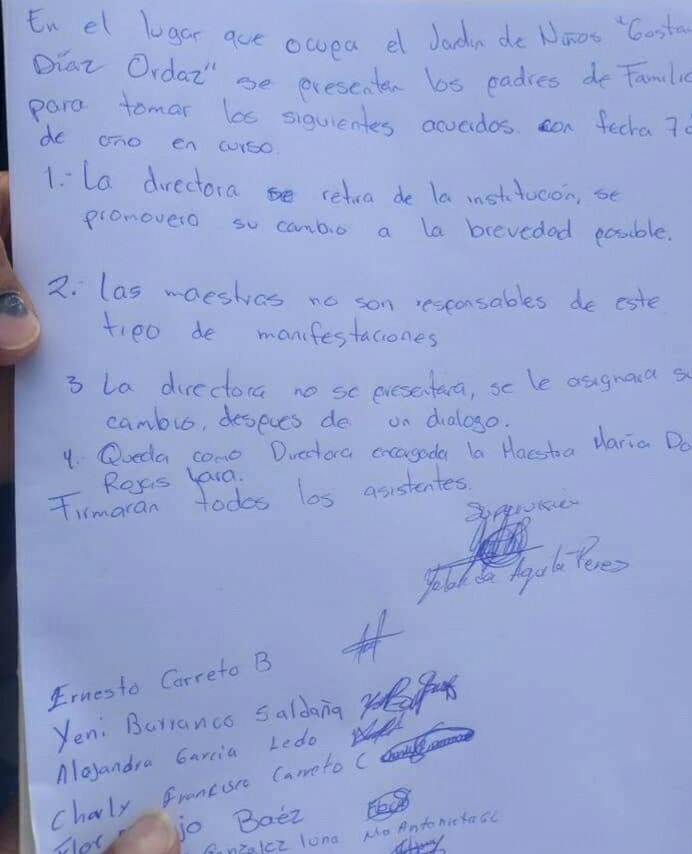 En el lugar que ocupa el Jardin de Niños "Gusta
Díaz Ordaz" se presentan los padres de Familia
para tomar los siguientes acuerdos. con fecha 7 d
de año en curso.
1.- La directora se retira de la institución, se
promovera su cambio a la brevedad posible.
2.- las maestras no son responsables de este
tipo de manifestaciones
3 La directora no se presentara, se le asignara su
cambio, despues de un dialogo.
4. Queda como Directora encargada la Maestra Maria Do
Rojas Lara.
Firmaran todos los asistentes.
Supervision
Yolanda Aguila Perez
Ernesto Carreto B
Yeni Barranco Saldaña
Alejandra Garcia Ledo
Charly Francisco Carreto C
Flor jo Baéz
Gonzalez luna Ma Antonieta GL